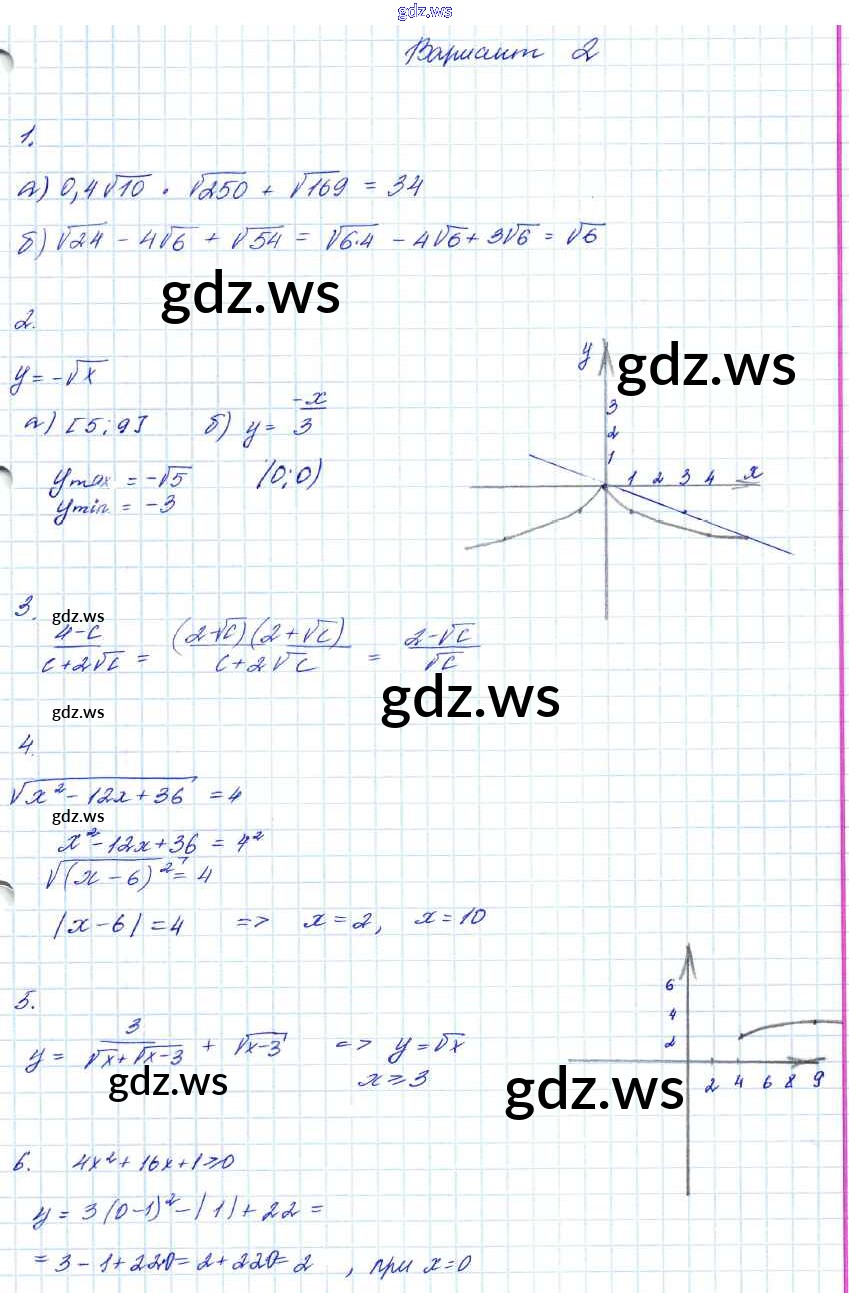 gdz.ws
Вариант 2
1.
а) 0,4√10 · √250 + √169 = 34
б) √24 - 4√6 + √54 = √6·4 - 4√6 + 3√6 = √6
gdz.ws
2.
y = -√x
а) [5; 9] б) y = -x/3
y max = -√5 (0; 0)
y min = -3
y
gdz.ws
3
2
1
1 2 3 4 x
3.
gdz.ws
4-c/c+2√c = (2-√c)(2+√c)/c+2√c = 2-√c/√c
gdz.ws
gdz.ws
4.
√x² - 12x + 36 = 4
gdz.ws
x² - 12x + 36 = 4²
√(x - 6)² = 4
|x - 6| = 4 => x = 2, x = 10
5.
y = 3/√x+√x-3 + √x-3 => y = √x
x ⩾ 3
gdz.ws
6
4
2
2 4 6 8 9
gdz.ws
6. 4x² + 16x + 1 ⩾ 0
y = 3(0-1)² - |1| + 22 =
= 3 - 1 + 220 = 2 + 220 = 2 , при x = 0